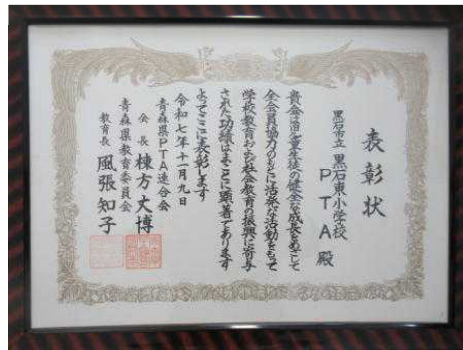 表彰状
黒石市立 黒石東小学校
PTA 殿
貴会は児童生徒の健全な成長をめざして
全会員協力のもとに活発な活動をもって
学校教育および社会教育の振興に寄与
された功績はまことに顕著であります
よってここに表彰します
令和七年十一月九日
青森県PTA連合会
会長 棟方丈博
青森県教育委員会
教育長 風張知子